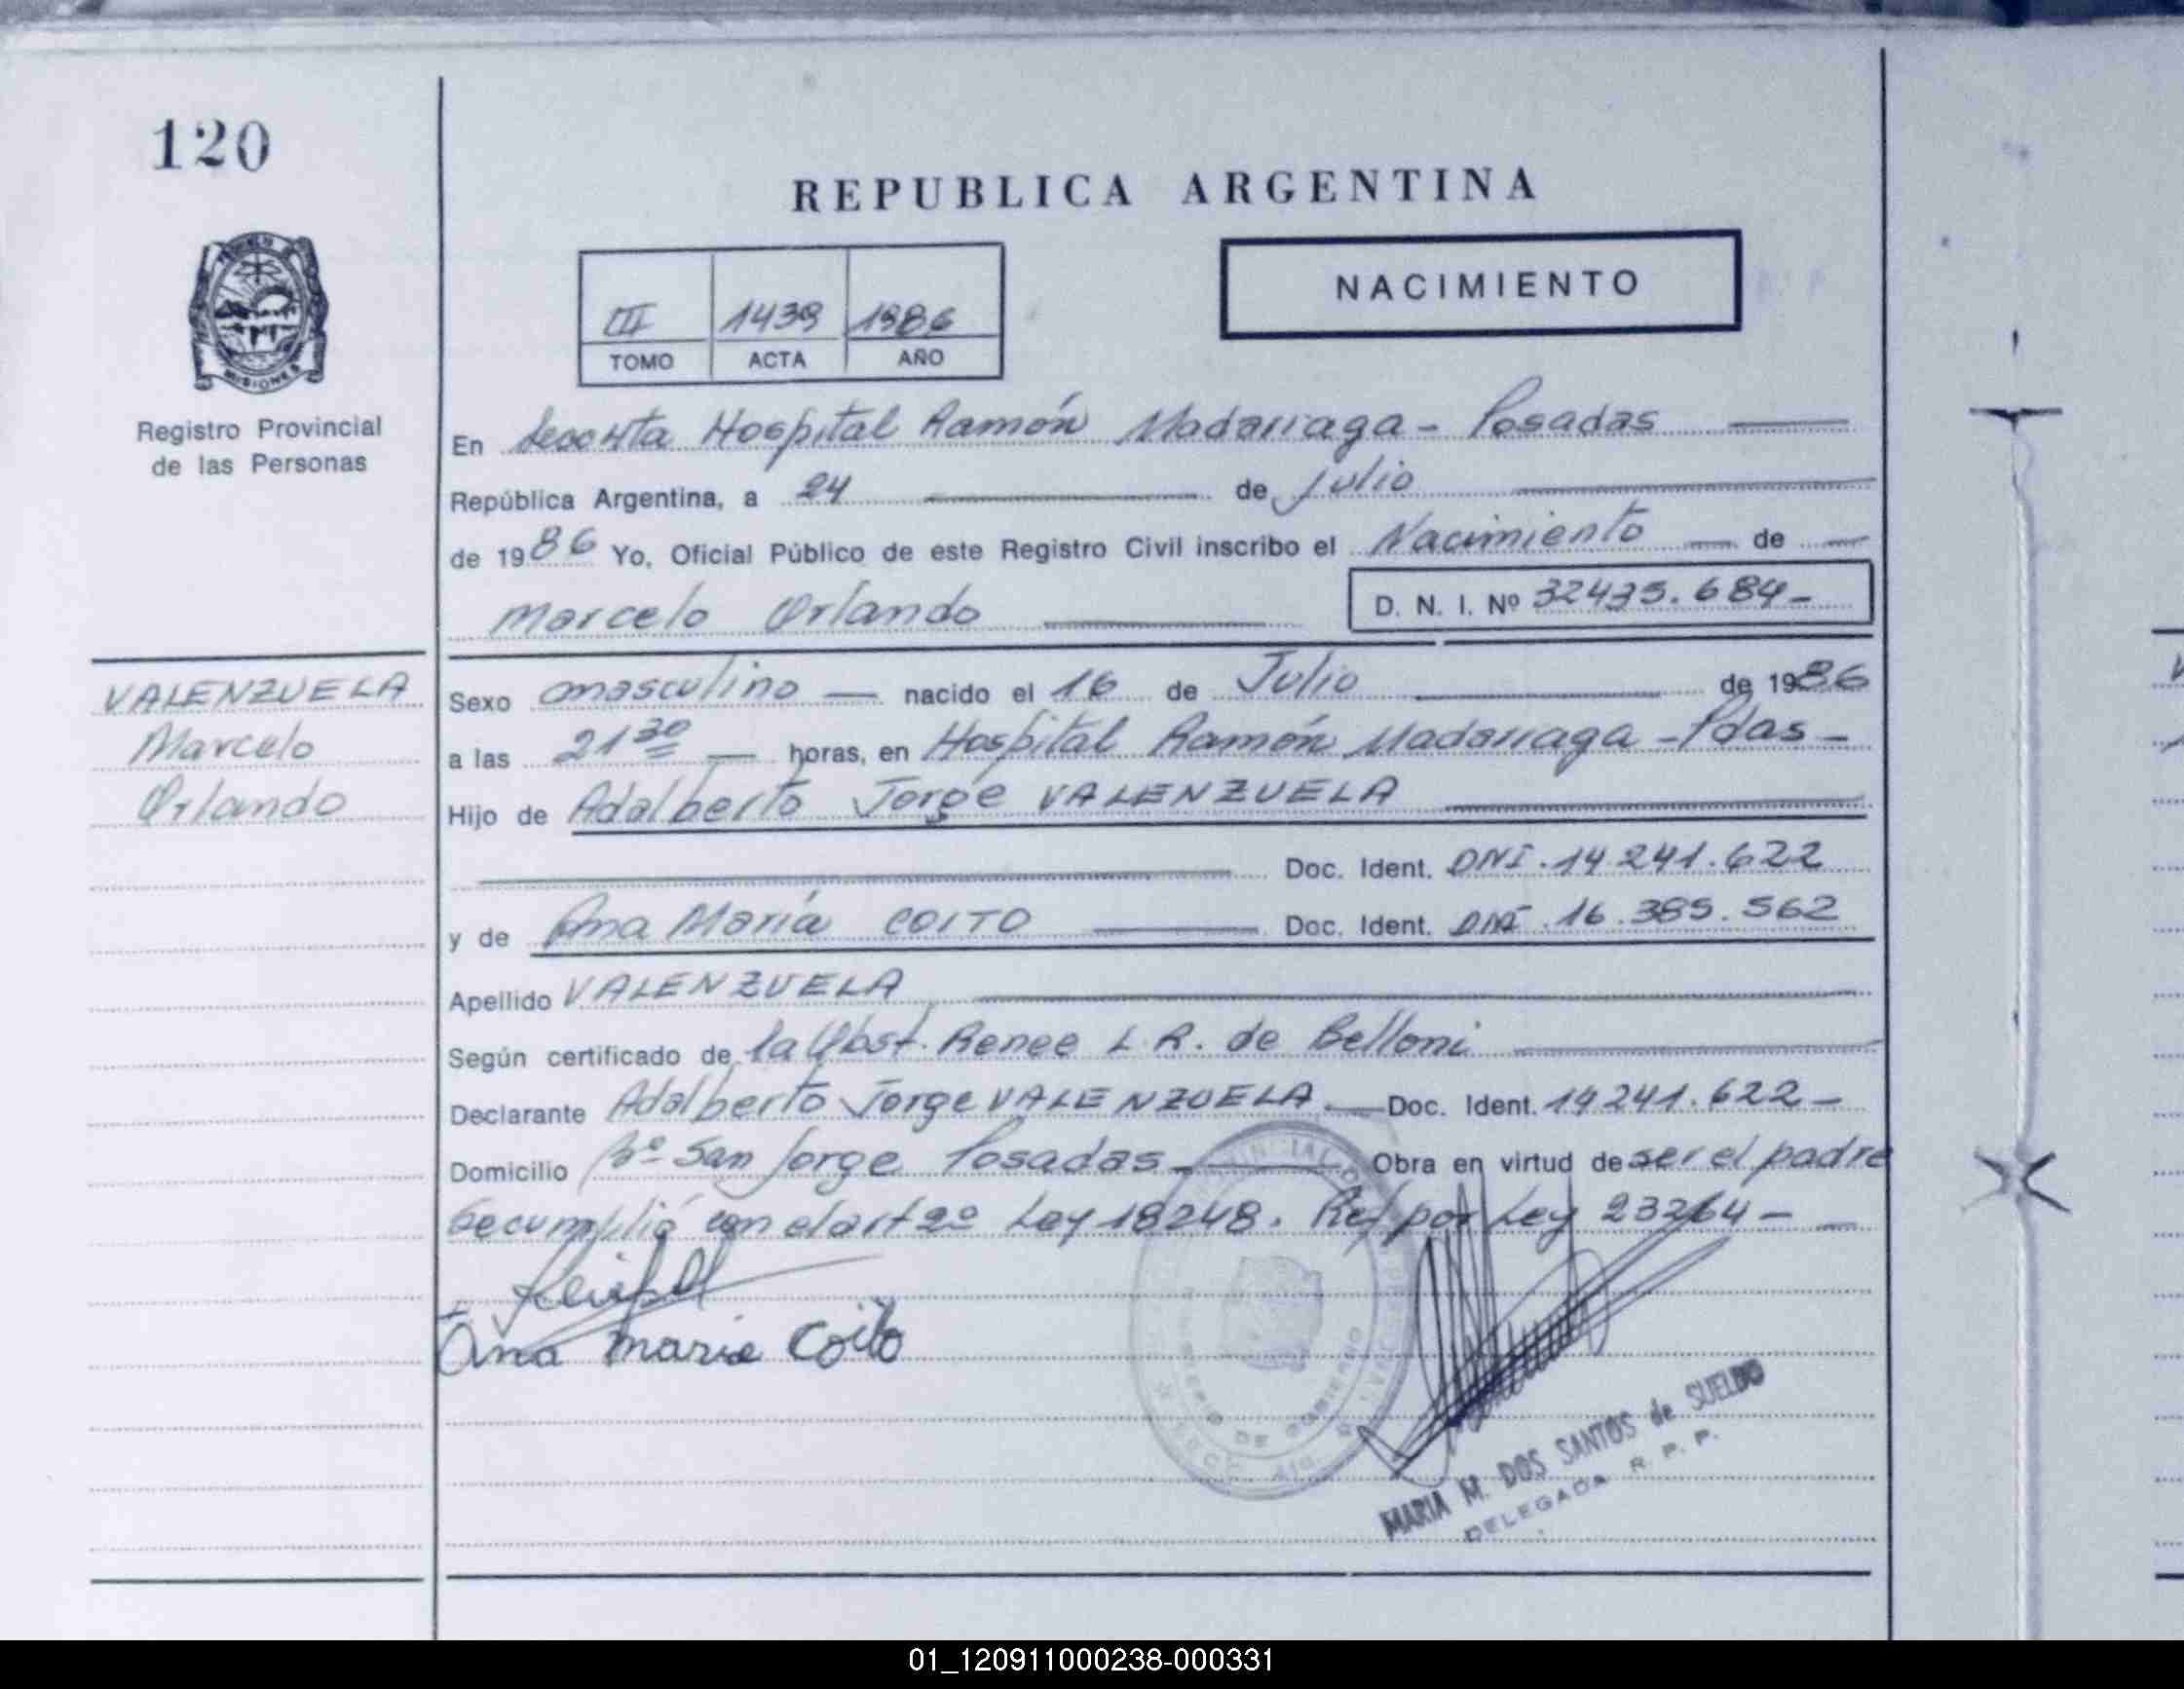 120
REPUBLICA ARGENTINA
NACIMIENTO
III 1439 1986
TOMO ACTA AÑO
MISIONES
Registro Provincial
de las Personas
En Hospital Ramón Madariaga - Posadas
República Argentina, a 24 de julio
de 1986 Yo, Oficial Público de este Registro Civil inscribo el Nacimiento de
Marcelo Orlando D. N. I. Nº 32435.684-
VALENZUELA
Marcelo
Orlando
Sexo masculino nacido el 16 de Julio de 1986
a las 21 30 horas, en Hospital Ramón Madariaga - Pdas -
Hijo de Adalberto Jorge VALENZUELA
Doc. Ident. DNI. 14 241.622
y de Ana María COITO Doc. Ident. DNI. 16.385.562
Apellido VALENZUELA
Según certificado de la Obst. Renee L R. de Belloni
Declarante Adalberto Jorge VALENZUELA Doc. Ident. 14 241.622 -
Domicilio Bº San Jorge Posadas Obra en virtud de ser el padre
Se cumplió con el art 2º Ley 18248. Ref por Ley 23264 -
Ana maria Coito
MARIA M. DOS SANTOS de SUELDO
DELEGADA R. P. P.
01_120911000238-000331